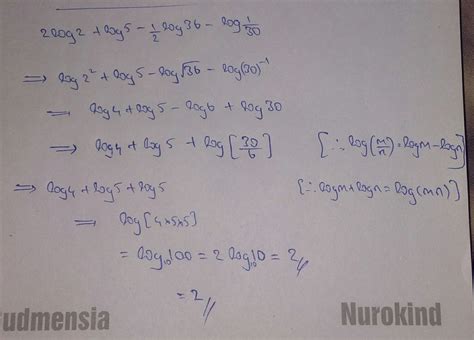 2log2 + log5 - 1/2 log36 - log 1/30
⟹ log2² + log5 - log√36 - log(30)⁻¹
⟹ log4 + log5 - log6 + log30
⟹ log4 + log5 + log[30/6] [∵ log(m/n) = logm - logn]
⟹ log4 + log5 + log5 [∵ logm + logn = log(mn)]
⟹ log[4×5×5]
= log₁₀100 = 2 log₁₀10 = 2//
= 2//
udmensia Nurokind